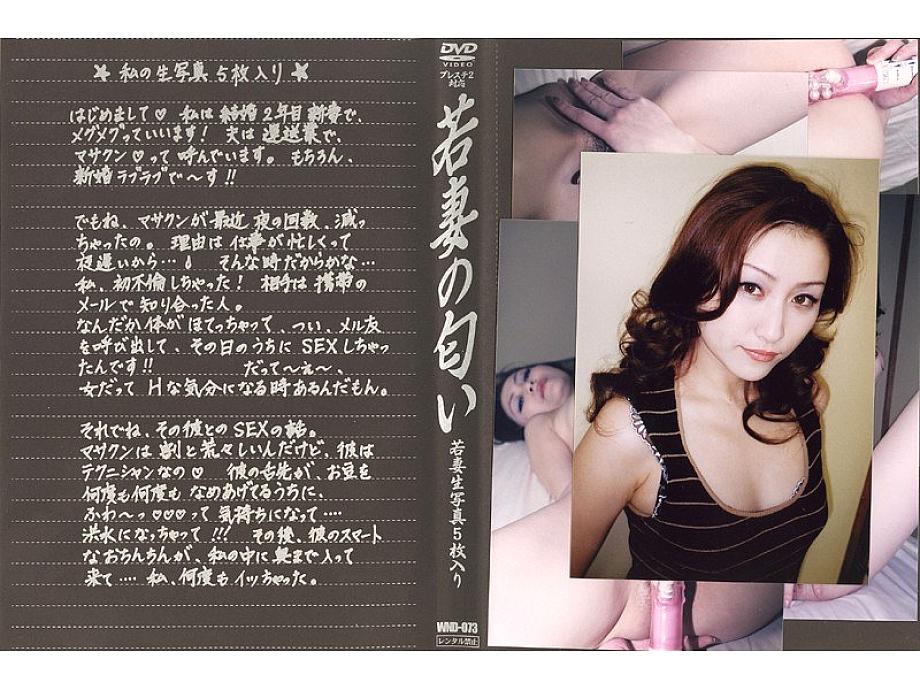 ★ 私の生写真5枚入り ★
はじめまして♡ 私は結婚2年目新妻で、
メグメグっていいます! 夫は運送業で、
マサクン♡って呼んでいます。もちろん、
新婚ラブラブで〜す!!
でもね、マサクンが最近夜の回数、減っ
ちゃったの。理由は仕事が忙しくって
夜遅いから…。そんな時だからかな…
私、初不倫しちゃった! 相手は携帯の
メールで知り合った人。
なんだか体がほてっちゃって、つい、メル友
を呼び出して、その日のうちにSEXしちゃっ
たんです!! だって〜ぇ〜、
女だってHな気分になる時あるんだもん。
それでね、その彼とのSEXの話。
マサクンは割と荒々しいんだけど、彼は
テクニシャンなの♡ 彼の舌先が、お豆を
何度も何度もなめあげてるうちに、
ふわ〜っ♡♡♡って気持ちになって‥‥
洪水になっちゃって!!! その後、彼のスマート
なおちんちんが、私の中に奥まで入って
来て‥‥私、何度もイッちゃった。
DVD
VIDEO
プレステ2
対応
若妻の匂い
若妻生写真5枚入り
WND-073
レンタル禁止